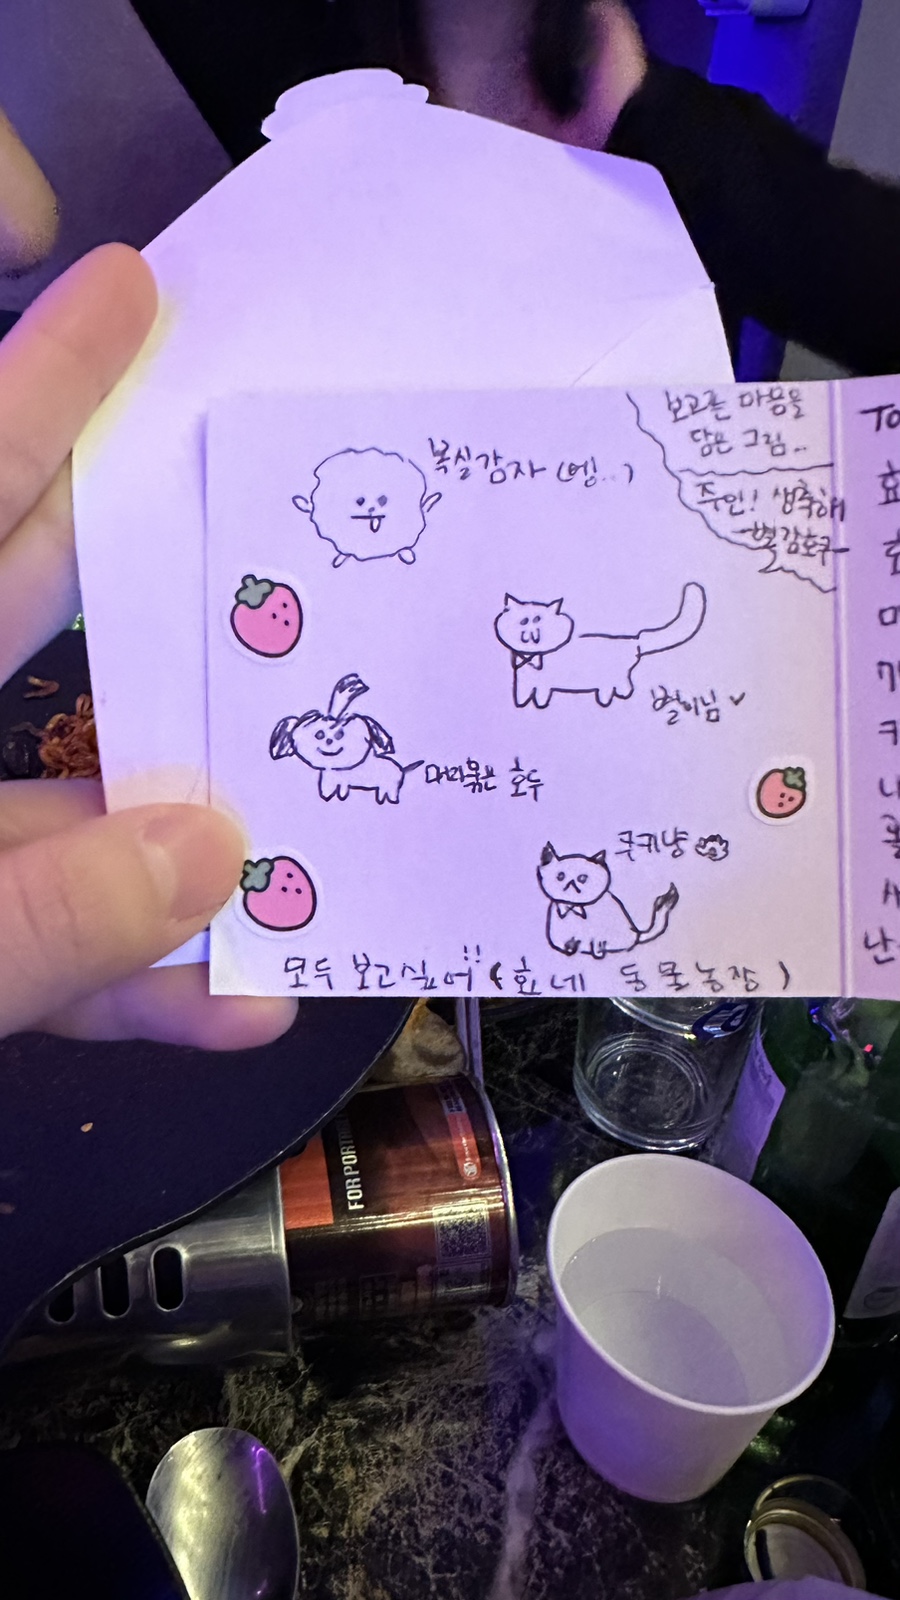 보고픈 마음을
담은 그림...
복실감자 (헹..)
주인! 생축해
-별감호쿠-
별이님
머리묶은 호두
쿠키냥
모두 보고싶어 (효네 동물농장)
To
FOR PORTABLE